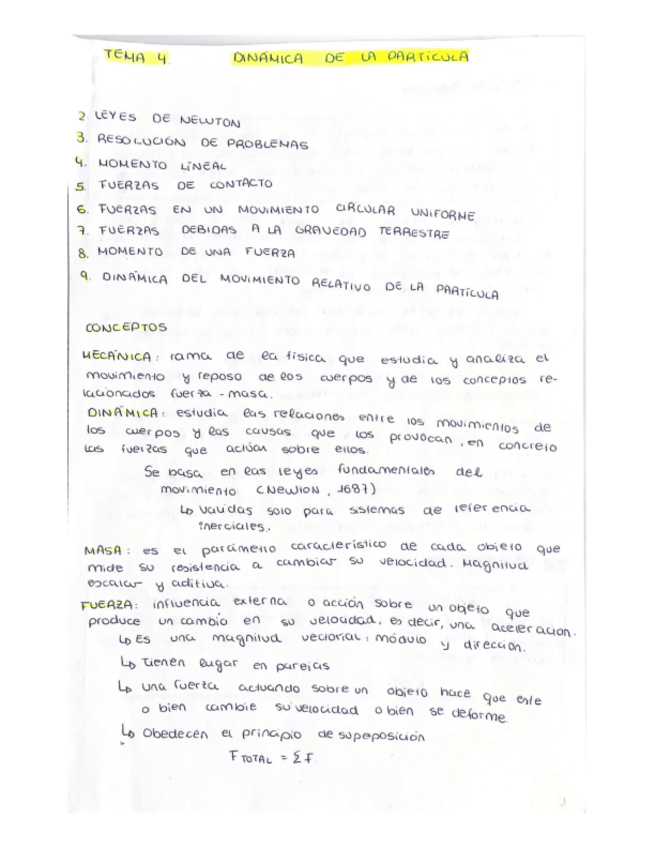 TEMA 4. DINÁMICA DE LA PARTÍCULA
2 LEYES DE NEWTON
3. RESOLUCIÓN DE PROBLEMAS
4. MOMENTO LINEAL
5. FUERZAS DE CONTACTO
6. FUERZAS EN UN MOVIMIENTO CIRCULAR UNIFORME
7. FUERZAS DEBIDAS A LA GRAVEDAD TERRESTRE
8. MOMENTO DE UNA FUERZA
9. DINÁMICA DEL MOVIMIENTO RELATIVO DE LA PARTÍCULA
CONCEPTOS
MECÁNICA: rama de la física que estudia y analiza el
movimiento y reposo de los cuerpos y de los conceptos re-
lacionados fuerza - masa.
DINÁMICA: estudia las relaciones entre los movimientos de
los cuerpos y las causas que los provocan, en concreto
las fuerzas que actúan sobre ellos.
Se basa en las leyes fundamentales del
movimiento (Newton, 1687)
↳ Validas solo para sistemas de referencia
inerciales.
MASA: es el parámetro característico de cada objeto que
mide su resistencia a cambiar su velocidad. Magnitud
escalar y aditiva.
FUERZA: influencia externa o acción sobre un objeto que
produce un cambio en su velocidad, es decir, una aceleracion.
↳ Es una magnitud vectorial: módulo y dirección.
↳ Tienen lugar en parejas
↳ una fuerza actuando sobre un objeto hace que este
o bien cambie su velocidad o bien se deforme
↳ Obedecen el principio de supeposición
F TOTAL = Σ F